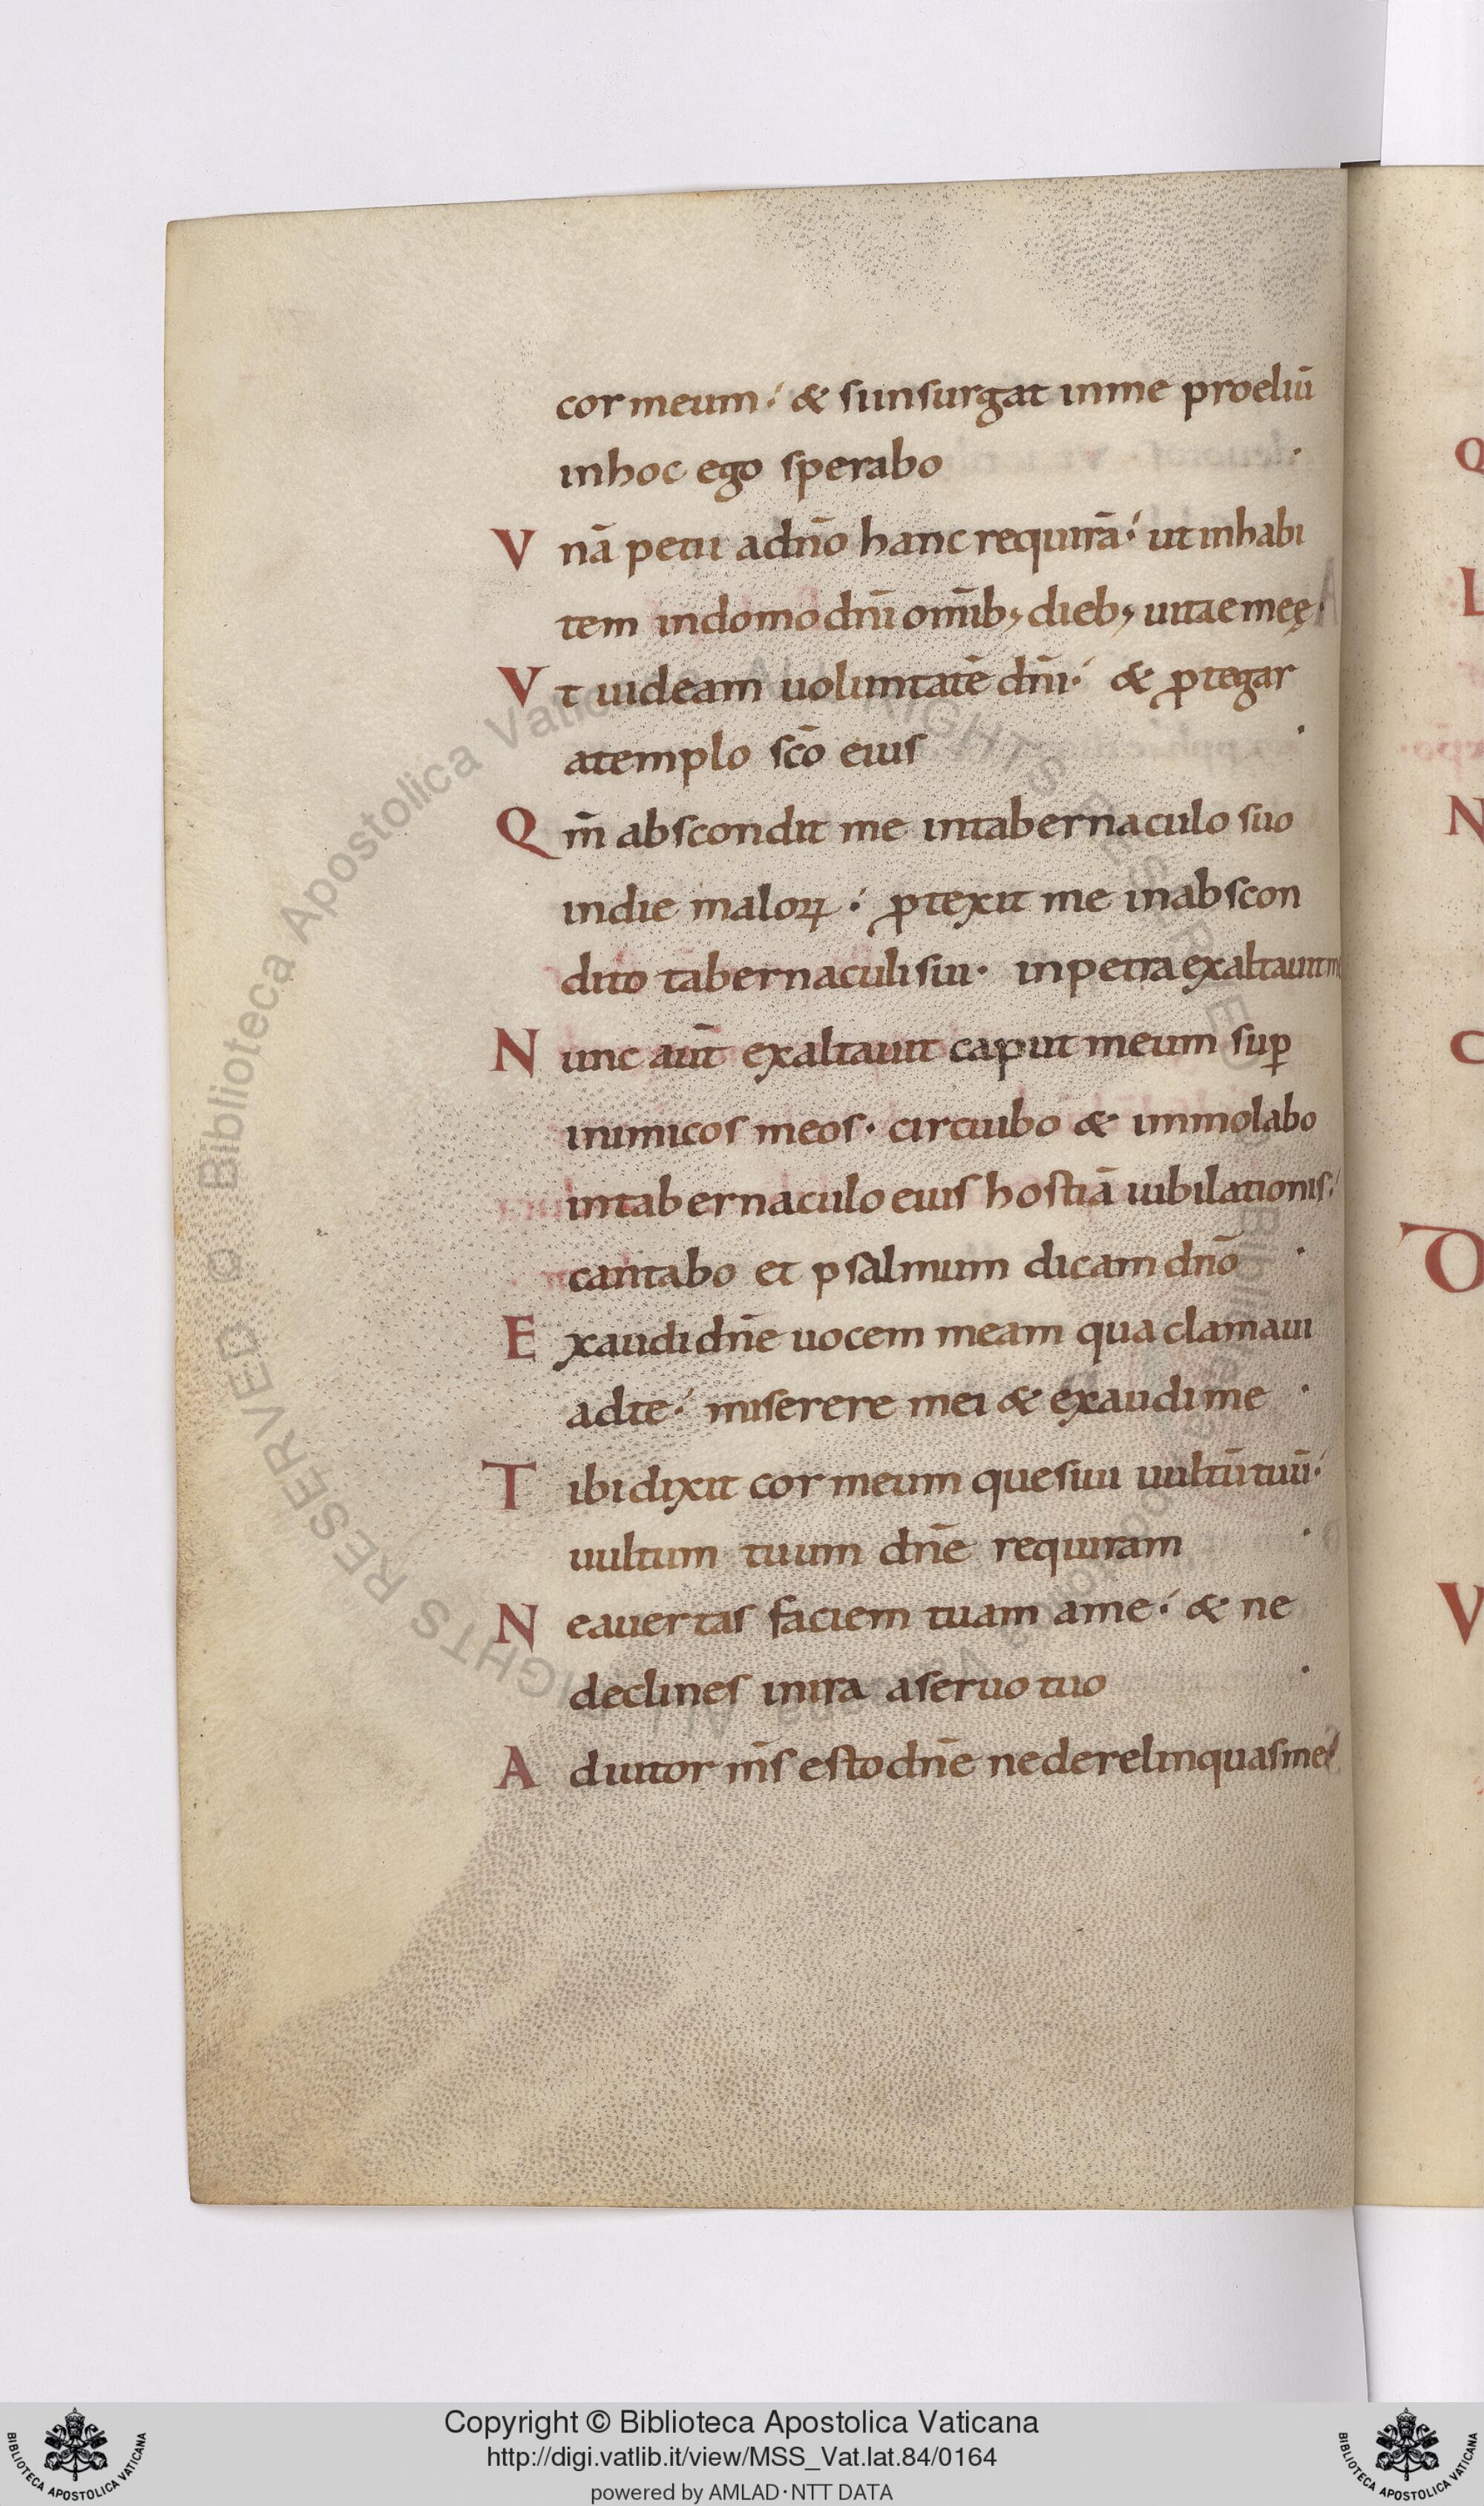 cor meum· & si insurgat inme proeliū
inhoc ego sperabo ·
V nā petii adnō hanc requirā· ut inhabi
tem indomo dnī omīb; dieb; uitae meę·
V t uideam uoluntatē dnī· & ꝓtegar
atemplo scō eius ·
Q m̄ abscondit me intabernaculo suo
indie maloꝝ· ꝓtexit me inabscon
dito tabernaculi sui· inpetra exaltauit me
N unc aut̄ exaltauit caput meum suꝑ
inimicos meos· circuibo & immolabo
intabernaculo eius hostiā iubilationis·
cantabo et psalmum dicam dnō ·
E xaudi dnē uocem meam qua clamaui
adte· miserere mei & exaudi me ·
T ibi dixit cor meum quesiui uultū tuū·
uultum tuum dnē requiram ·
N eauertas faciem tuam ame· & ne
declines inira aseruo tuo ·
A diutor m̄s esto dnē nederelinquasme
Q
L
N
C
D
V
© Biblioteca Apostolica Vaticana ALL RIGHTS RESERVED
Copyright © Biblioteca Apostolica Vaticana
http://digi.vatlib.it/view/MSS_Vat.lat.84/0164
powered by AMLAD·NTT DATA
BIBLIOTECA APOSTOLICA VATICANA
BIBLIOTECA APOSTOLICA VATICANA